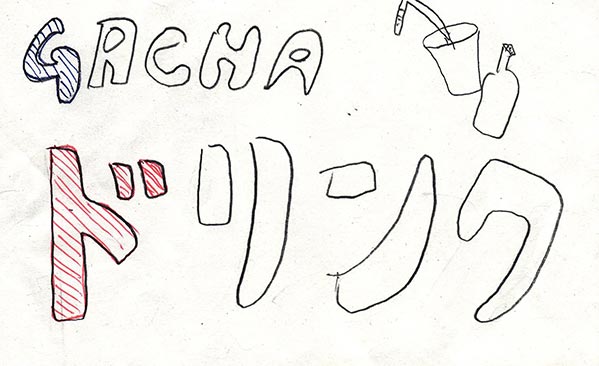 GACHA
ドリンク